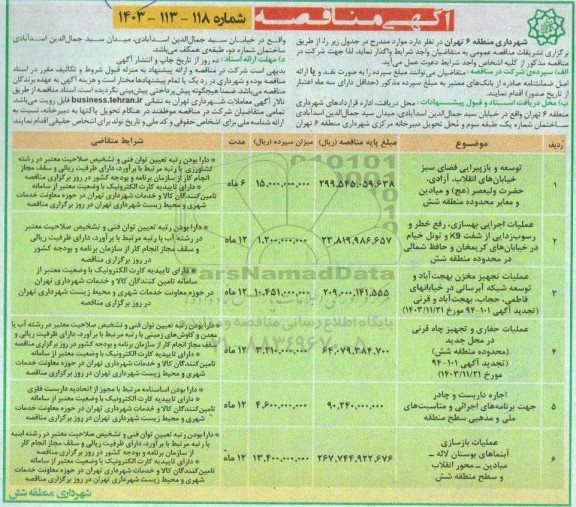 آگهی مناقصه
شماره ۱۱۸ - ۱۱۳ - ۱۴۰۳
شهرداری منطقه ۶ تهران در نظر دارد موارد مندرج در جدول زیر را، از طریق
برگزاری تشریفات مناقصه عمومی به متقاضیان واجد شرایط واگذار نماید. لذا جهت شرکت در
مناقصه مذکور از کلیه اشخاص واجد شرایط دعوت عمل می‌آید.
الف) سپرده‌ی شرکت در مناقصه: متقاضیان می توانند مبلغ سپرده را به صورت نقد و یا ارائه
اصل ضمانتنامه صادره از بانک‌های معتبر به مبلغ سپرده مذکور (حداقل دارای سه ماه اعتبار
از تاریخ صدور) اقدام نمایند.
ب) محل دریافت اسناد و قبول پیشنهادات: محل دریافت، اداره قراردادهای شهرداری
منطقه ۶ تهران واقع در خیابان سید جمال‌الدین اسدآبادی، میدان سید جمال‌الدین اسدآبادی
ساختمان شماره یک، طبقه سوم و مُحل تحویل دبیرخانه مرکزی شهرداری منطقه ۶ تهران
واقع در خیابان سید جمال‌الدین اسدآبادی، میدان سید جمال‌الدین اسدآبادی
ساختمان شماره دو، طبقه‌ی همکف می‌باشد.
د) مهلت ارائه اسناد: ده روز از تاریخ چاپ و انتشار آگهی
بدیهی است شرکت در مناقصه و ارائه پیشنهاد به منزله قبول شروط و تکالیف مقرر در اسناد
مناقصه بوده و شهرداری در رد یک یا تمام پیشنهادها مختار است و هزینه آگهی به عهده برندگان
مناقصه می‌باشد ضمنا هیچگونه پیش‌پرداختی پیش‌بینی نگردیده است. اسناد مناقصه از طریق
تالار آگهی معاملات شهرداری تهران به نشانی business.tehran.ir قابل رویت می‌باشد
تمامی متقاضیان شرکت در مناقصه موظفند در هنگام تحویل پاکتها به دبیرخانه، نسبت به
ارائه شناسه ملی برای اشخاص حقوقی و کد ملی و تاریخ تولد برای اشخاص حقیقی اقدام نمایند.
ردیف موضوع مبلغ پایه مناقصه(ریال) میزان سپرده (ریال) مدت شرایط متقاضی
۱ توسعه و بازپیرایی فضای سبز
خیابان‌های انقلاب، آزادی،
حضرت ولیعصر (عج) و میادین
و معابر محدوده منطقه
۲۹۹.۵۴۵.۰۵۹.۶۳۸ ۱۵.۰۰۰.۰۰۰.۰۰۰ ۶ ماه
* دارا بودن رتبه تعیین توان فنی و تشخیص صلاحیت معتبر در رشته
کشاورزی با رتبه مرتبط با برآورد، دارای ظرفیت ریالی و سقف مجاز
انجام کار از سازمان برنامه و بودجه کشور در روز برگزاری مناقصه
* دارای تاییدیه کارت الکترونیک با وضعیت معتبر از سامانه
تامین‌کنندگان کالا و خدمات شهرداری تهران در حوزه معاونت خدمات
شهری و محیط زیست شهرداری تهران در روز برگزاری مناقصه
۲ عملیات اجرایی بهسازی، رفع خطر و
رسوب‌زدایی از شفت K9 و تونل خیام
در خیابان‌های کریمخان و حافظ شمالی
در محدوده منطقه شش
۲۳,۸۱۹,۹۸۶,۶۵۷ ۱.۲۰۰.۰۰۰.۰۰۰ ۱۲ ماه
* دارا بودن رتبه تعیین توان فنی و تشخیص صلاحیت معتبر
در رشته آب با رتبه مرتبط با برآورد، دارای ظرفیت ریالی
و سقف مجاز انجام کار از سازمان برنامه و بودجه کشور
در روز برگزاری مناقصه
۳ عملیات تجهیز مخزن بهجت‌آباد و
توسعه شبکه آبرسانی در خیابانهای
فاطمی، حجاب، بهجت‌آباد و قرنی
(تجدید آگهی ۱۰۱-۹۴ مورخ ۱۴۰۳/۱۱/۲۱)
۲۰۹.۰۰۰,۱۴۱,۵۵۵ ۱۰.۴۵۱.۰۰۰.۰۰۰ ۱۲ ماه
* دارای تاییدیه کارت الکترونیک با وضعیت معتبر از
سامانه تامین کنندگان کالا و خدمات شهرداری تهران
در حوزه معاونت خدمات شهری و محیط زیست شهرداری تهران
در روز برگزاری مناقصه
۴ عملیات حفاری و تجهیز چاه قرنی
در محل جدید
(محدوده منطقه شش)
(تجدید آگهی ۱۰۱-۹۴
مورخ ۱۴۰۳/۱۱/۲۱)
۶۴,۰۷۹,۳۸۴,۷۰۰ ۳,۲۱۰,۰۰۰,۰۰۰ ۱۲ ماه
* دارا بودن رتبه تعیین توان فنی و تشخیص صلاحیت معتبر در رشته آب یا
معدن و کاوش‌های زمینی با رتبه مرتبط با برآورد، دارای ظرفیت ریالی و سقف
مجاز انجام کار از سازمان برنامه و بودجه کشور در روز برگزاری مناقصه
* دارای تاییدیه کارت الکترونیک با وضعیت معتبر از سامانه
تامین‌کنندگان کالا و خدمات شهرداری تهران در حوزه معاونت خدمات
شهری و محیط زیست شهرداری تهران در روز برگزاری مناقصه
۵ اجاره داربست و چادر
جهت برنامه‌های اجرائی و مناسبت‌های
ملی و مذهبی سطح منطقه
۹۰,۲۴۰,۰۰۰,۰۰۰ ۴,۶۰۰,۰۰۰,۰۰۰ ۱۲ ماه
* دارا بودن اساسنامه مرتبط با مجوز از اتحادیه داربست فلزی
* دارای تاییدیه کارت الکترونیک با وضعیت معتبر از سامانه
تامین‌کنندگان کالا و خدمات شهرداری تهران در حوزه معاونت خدمات
شهری و محیط زیست شهرداری تهران در روز برگزاری مناقصه
۶ عملیات بازسازی
آبنماهای بوستان لاله -
میادین - محور انقلاب
و سطح منطقه شش
۲۶۷,۷۴۴,۹۲۲,۶۷۶ ۱۳,۴۰۰,۰۰۰,۰۰۰ ۱۲ ماه
* دارا بودن رتبه تعیین توان فنی و تشخیص صلاحیت معتبر در رشته ابنیه
با رتبه مرتبط با برآورد، دارای ظرفیت ریالی و سقف مجاز انجام کار
از سازمان برنامه و بودجه کشور در روز برگزاری مناقصه
* دارای تاییدیه کارت الکترونیک با وضعیت معتبر از سامانه
تامین‌کنندگان کالا و خدمات شهرداری تهران در حوزه معاونت خدمات
شهری و محیط زیست شهرداری تهران در روز برگزاری مناقصه
شهرداری منطقه شش
ParsNamadData
پایگاه اطلاع رسانی مناقصه و مزایده